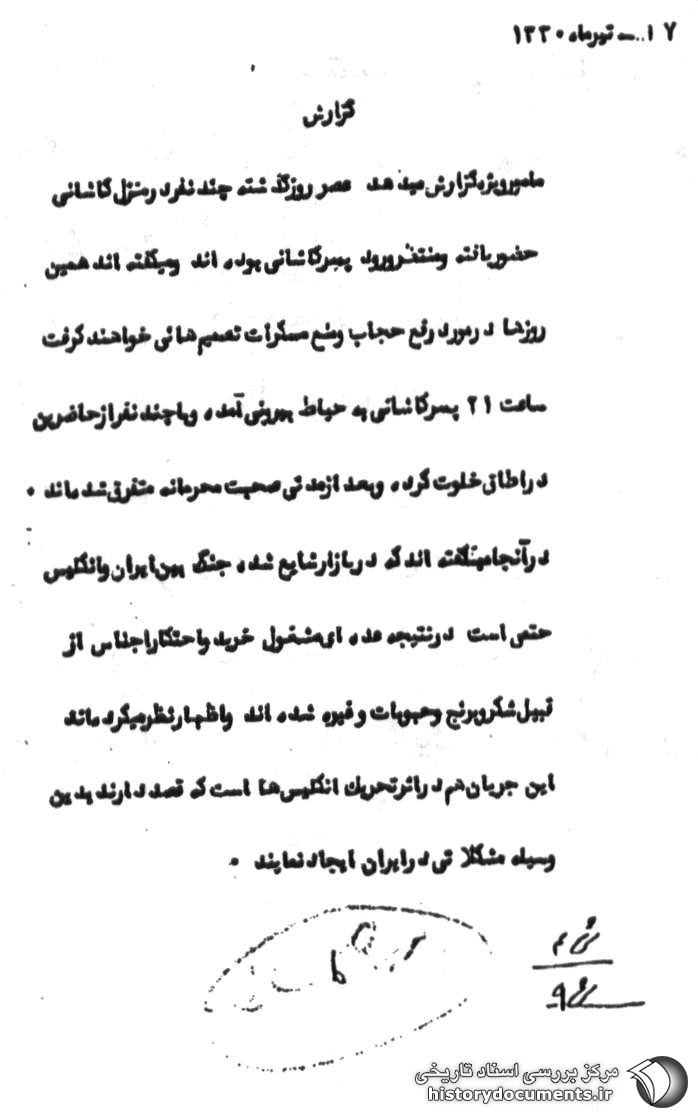 ۱۷ ... تیرماه ۱۳۳۰
گزارش
مامور ویژه گزارش میدهد عصر روز گذشته چند نفر در منزل کاشانی
حضور یافته و منتظر ورود پسر کاشانی بوده اند و میگفته اند همین
روزها در مورد رفع حجاب و منع مسکرات تصمیم هائی خواهند گرفت
ساعت ۲۱ پسر کاشانی به حیاط بیرونی آمده و با چند نفر از حاضرین
در اطاقی خلوت کرده و بعد از مدتی صحبت محرمانه متفرق شده اند ٠
در آنجا میگفته اند که در بازار شایع شده جنگ بین ایران و انگلیس
حتمی است در نتیجه عده ای مشغول خرید و احتکار اجناس از
قبیل شکر و برنج و حبوبات و غیره شده اند و اظهار نظر میکرده اند
این جریان هم در اثر تحریک انگلیس ها است که قصد دارند بدین
وسیله مشکلاتی در ایران ایجاد نمایند ٠
مرکز بررسی اسناد تاریخی
historydocuments.ir